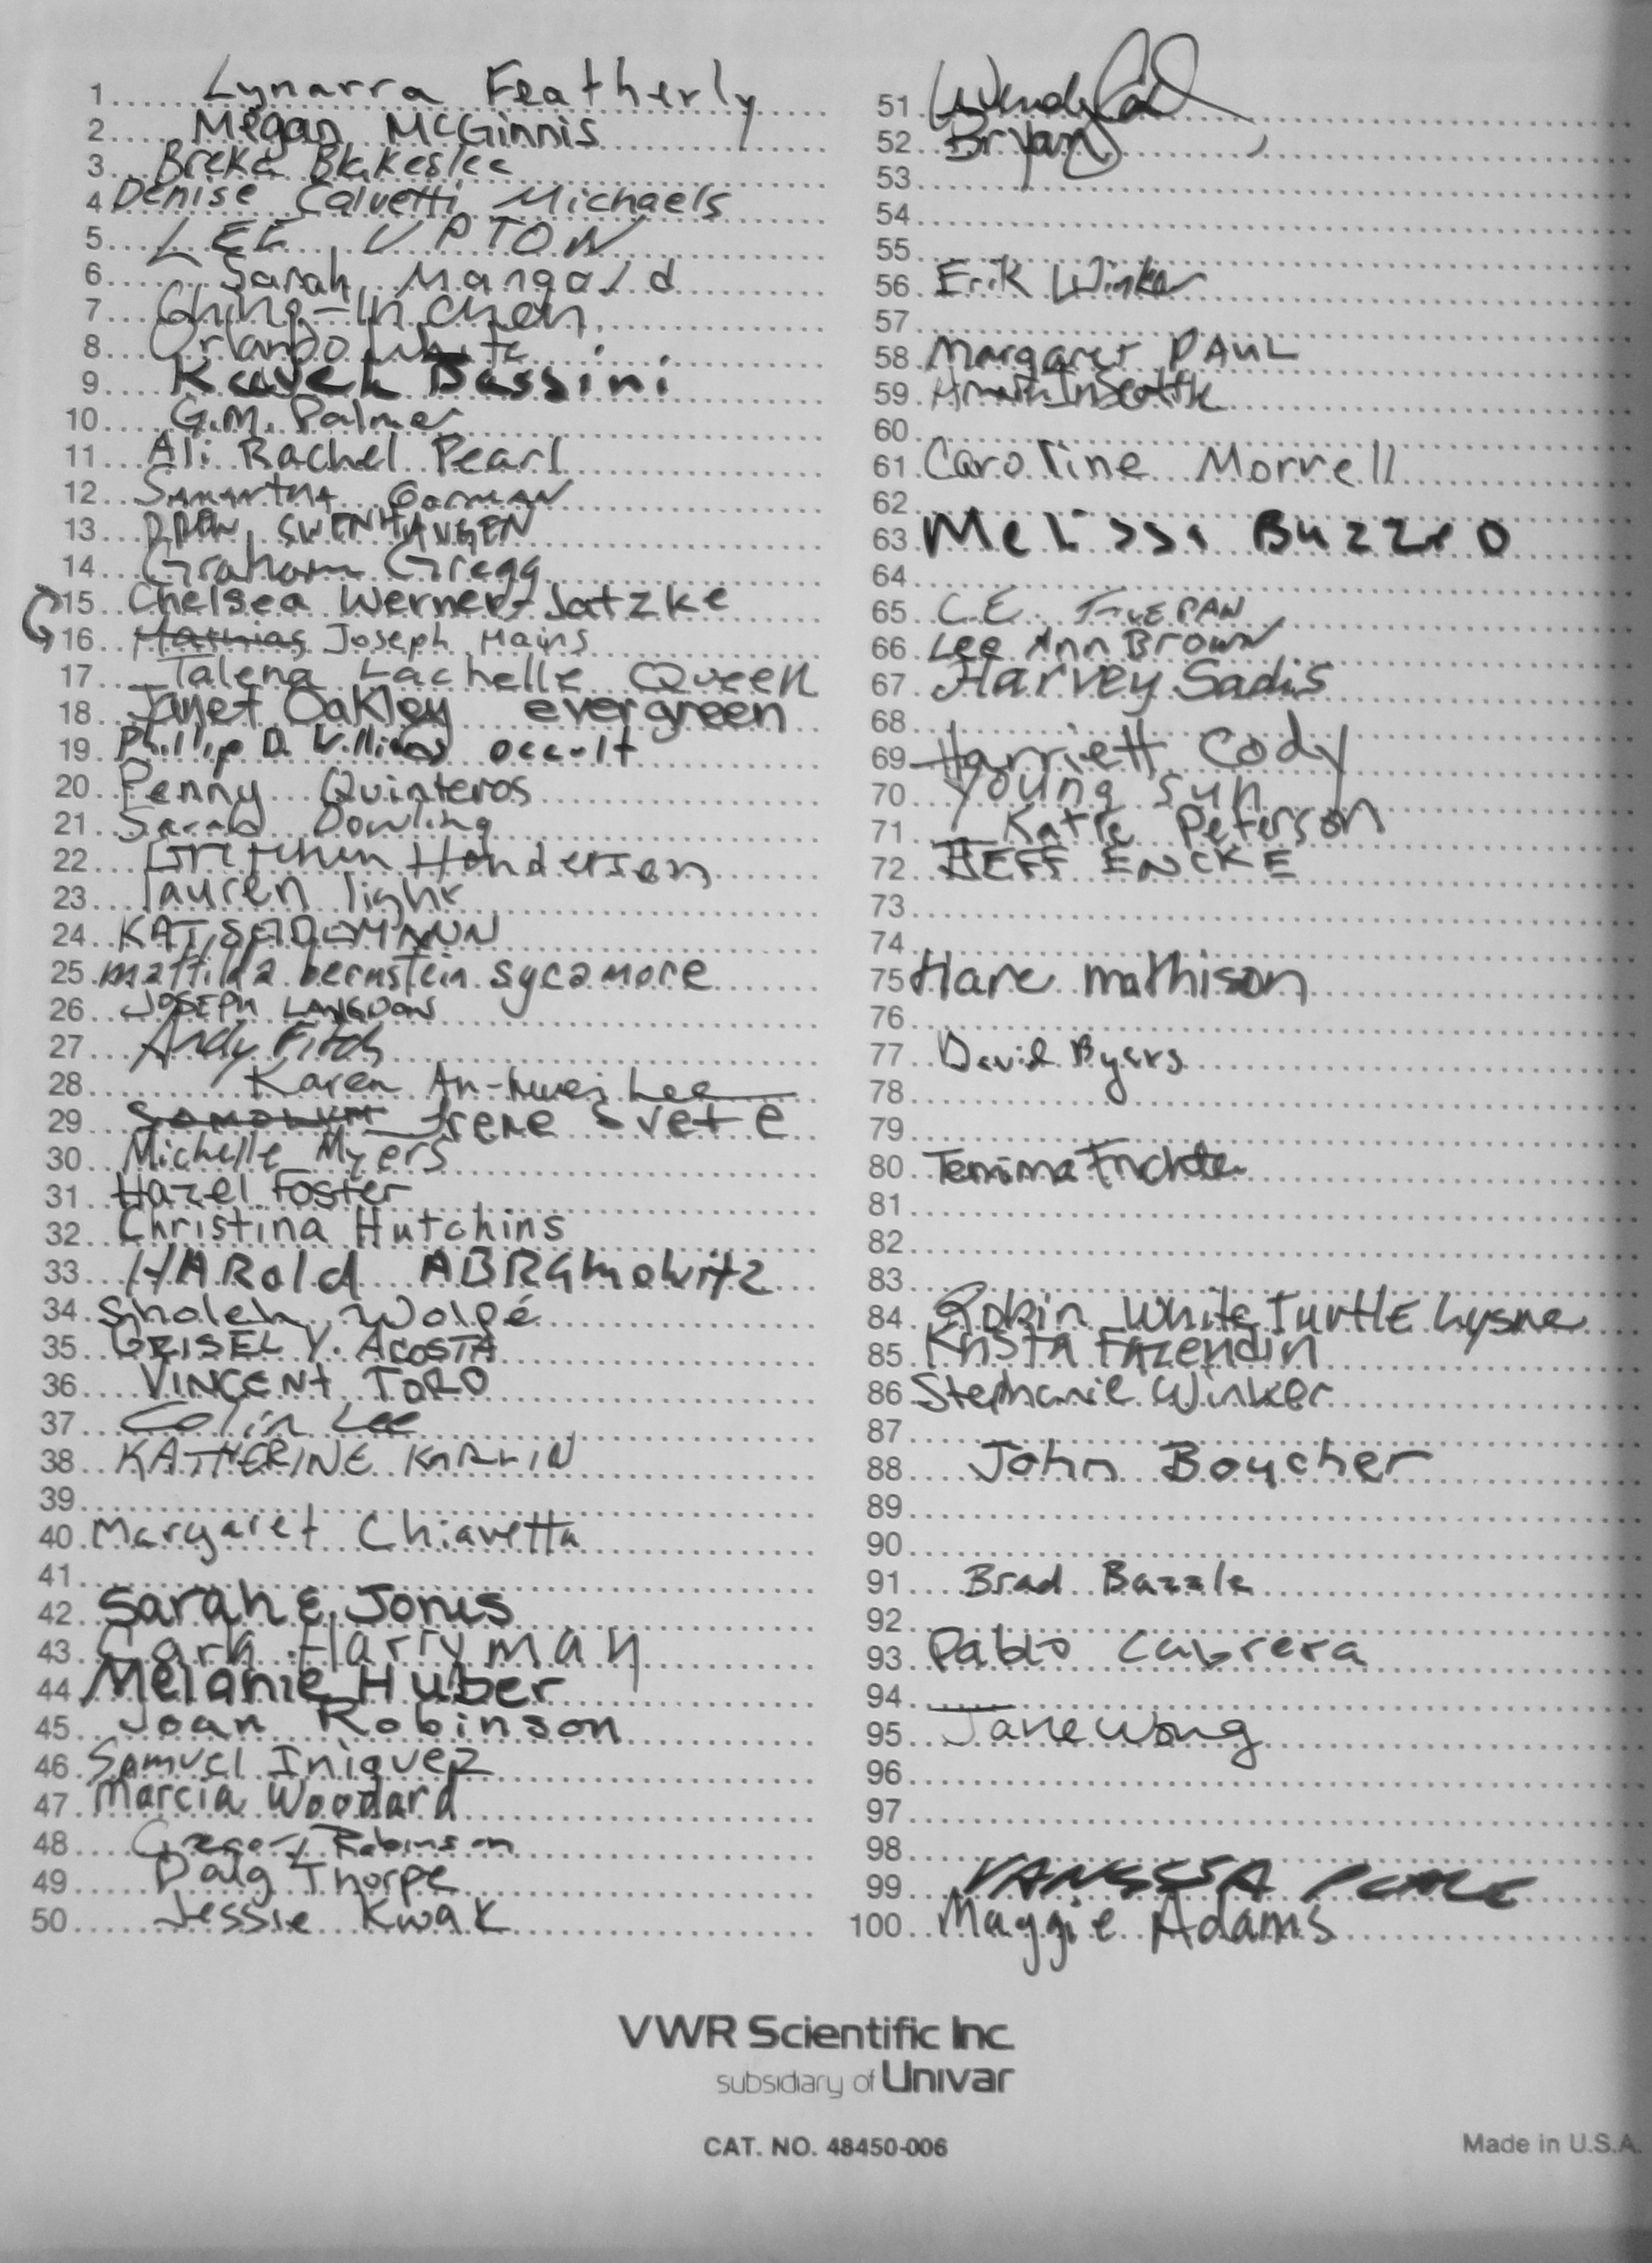 1 Lynarra Featherly
2 Megan McGinnis
3 Breka Blakeslee
4 Denise Calvetti Michaels
5 LEE UPTON
6 Sarah Mangold
7 Ching-In Chen
8 Orlando White
9 Kaveh Bassiri
10 G.M. Palmer
11 Ali Rachel Pearl
12 SAMANTHA GORMAN
13 SWENHAUGEN
14 Graham Gregg
15 Chelsea Werner-Jatzke
16 Mathias Joseph Mains
17 Talena Lachelle Queen
18 Janet Oakley evergreen
19 Phillip D. occult
20 Penny Quinteros
21 Sarah Dowling
22 Gretchen Henderson
23 lauren light
24 KAT SEIDEMANN
25 mattilda bernstein sycamore
26 JOSEPH LANGDON
27 Andy Fitch
28 Karen An-hwei Lee
29 Irene Svete
30 Michelle Myers
31 Hazel Foster
32 Christina Hutchins
33 HARold ABRAmowitz
34 Sholeh Wolpé
35 GRISEL Y. ACOSTA
36 VINCENT TORO
37 Colin Lee
38 KATHERINE KARLIN
39
40 Margaret Chiavetta
41
42 Sarah E. Jones
43 Carla Harryman
44 Melanie Huber
45 Joan Robinson
46 Samuel Iniguez
47 Marcia Woodard
48 Gregory Robinson
49 Doug Thorpe
50 Jessie Kwak
51 Wendy
52 Bryan
53
54
55
56 Erik Winker
57
58 Margaret PAUL
59
60
61 Caroline Morrell
62
63 Melissa Buzzeo
64
65 C.E.
66 Lee Ann Brown
67 Harvey Sadis
68
69 Harriett Cody
70 Young Sun
71 Katie Peterson
72 JEFF ENCKE
73
74
75 Hare mathison
76
77 David Byers
78
79
80
81
82
83
84 Robin White Turtle Lysne
85 Krista Fazendin
86 Stephanie Winker
87
88 John Boucher
89
90
91 Brad Bazzle
92
93 Pablo Cabrera
94
95 Jane Wong
96
97
98
99 VANESSA PLACE
100 Maggie Adams
VWR Scientific Inc
subsidiary of Univar
CAT. NO. 48450-006
Made in U.S.A.